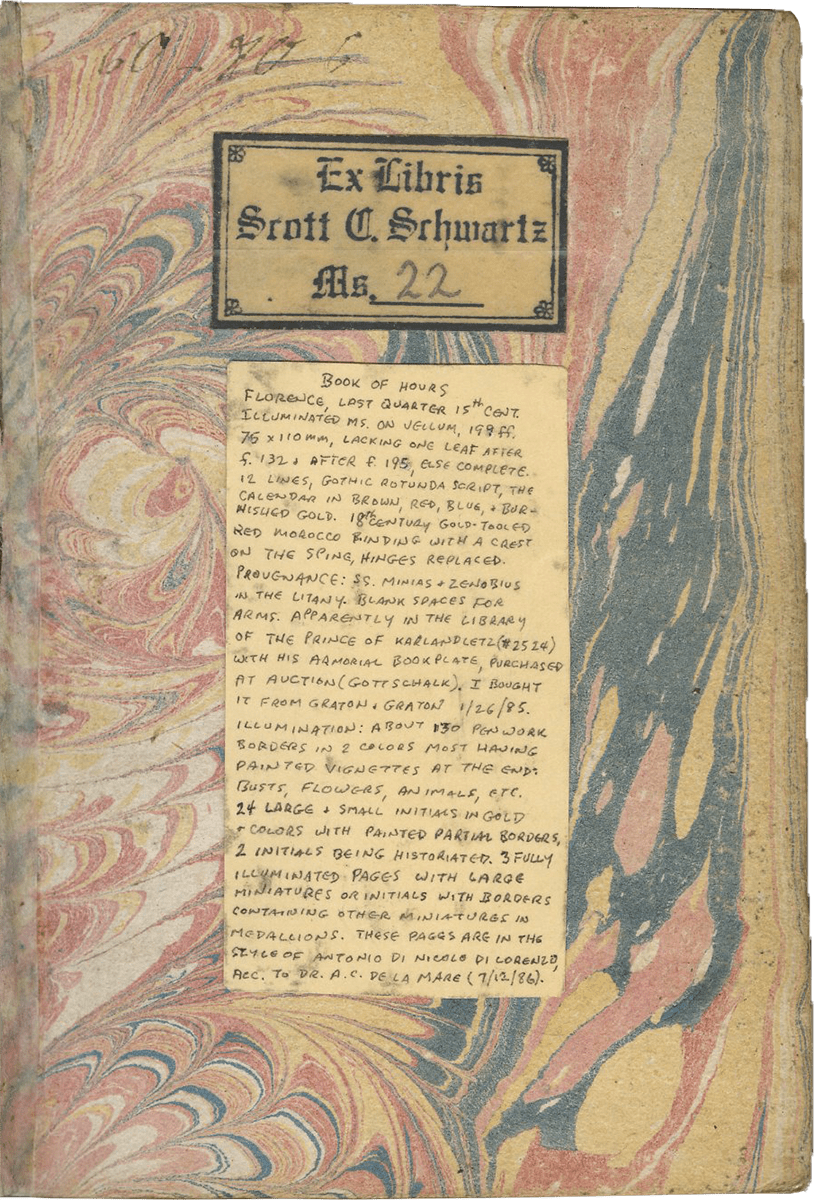 Ex Libris
Scott C. Schwartz
Ms. 22
BOOK OF HOURS
FLORENCE, LAST QUARTER 15th CENT.
ILLUMINATED MS. ON VELLUM, 198 ff.
75 x 110 mm, LACKING ONE LEAF AFTER
f. 132 + AFTER f. 195, ELSE COMPLETE.
12 LINES, GOTHIC ROTUNDA SCRIPT, THE
CALENDAR IN BROWN, RED, BLUE, + BUR-
NISHED GOLD. 18th CENTURY GOLD-TOOLED
RED MOROCCO BINDING WITH A CREST
ON THE SPINE, HINGES REPLACED.
PROVENANCE: SS. MINIAS + ZENOBIUS
IN THE LITANY. BLANK SPACES FOR
ARMS. APPARENTLY IN THE LIBRARY
OF THE PRINCE OF KARLANDLETZ (#2524)
WITH HIS ARMORIAL BOOKPLATE, PURCHASED
AT AUCTION (GOTTSCHALK). I BOUGHT
IT FROM GRATON + GRATON 1/26/85.
ILLUMINATION: ABOUT 130 PENWORK
BORDERS IN 2 COLORS MOST HAVING
PAINTED VIGNETTES AT THE END:
BUSTS, FLOWERS, ANIMALS, ETC.
24 LARGE + SMALL INITIALS IN GOLD
+ COLORS WITH PAINTED PARTIAL BORDERS,
2 INITIALS BEING HISTORIATED. 3 FULLY
ILLUMINATED PAGES WITH LARGE
MINIATURES OR INITIALS WITH BORDERS
CONTAINING OTHER MINIATURES IN
MEDALLIONS. THESE PAGES ARE IN THE
STYLE OF ANTONIO DI NICOLO DI LORENZO,
ACC. TO DR. A.C. DE LA MARE (7/12/86).